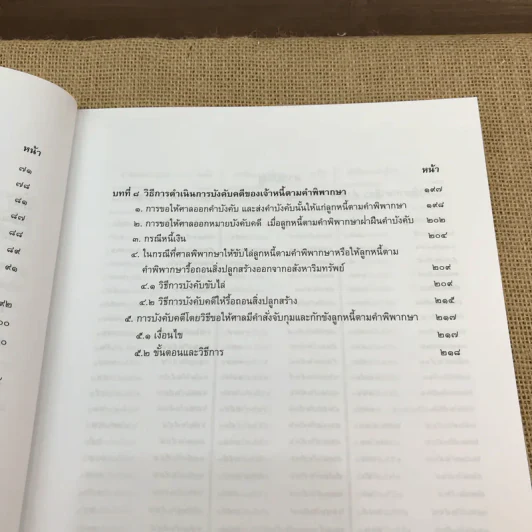 หน้า
๗๑
๗๘
๘๑
๘๗
๘๘
๘๙
๙๑
หน้า
บทที่ ๘ วิธีการดำเนินการบังคับคดีของเจ้าหนี้ตามคำพิพากษา ๑๙๗
๑. การขอให้ศาลออกคำบังคับ และส่งคำบังคับนั้นให้แก่ลูกหนี้ตามคำพิพากษา ๑๙๘
๒. การขอให้ศาลออกหมายบังคับคดี เมื่อลูกหนี้ตามคำพิพากษาฝ่าฝืนคำบังคับ ๒๐๒
๓. กรณีหนี้เงิน ๒๐๔
๔. ในกรณีที่ศาลพิพากษาให้ขับไล่ลูกหนี้ตามคำพิพากษาหรือให้ลูกหนี้ตาม
คำพิพากษารื้อถอนสิ่งปลูกสร้างออกจากอสังหาริมทรัพย์ ๒๐๙
๔.๑ วิธีการบังคับขับไล่ ๒๐๙
๔.๒ วิธีการบังคับคดีให้รื้อถอนสิ่งปลูกสร้าง ๒๑๕
๕. การบังคับคดีโดยวิธีขอให้ศาลมีคำสั่งจับกุมและกักขังลูกหนี้ตามคำพิพากษา ๒๑๗
๕.๑ เงื่อนไข ๒๑๗
๕.๒ ขั้นตอนและวิธีการ ๒๑๘